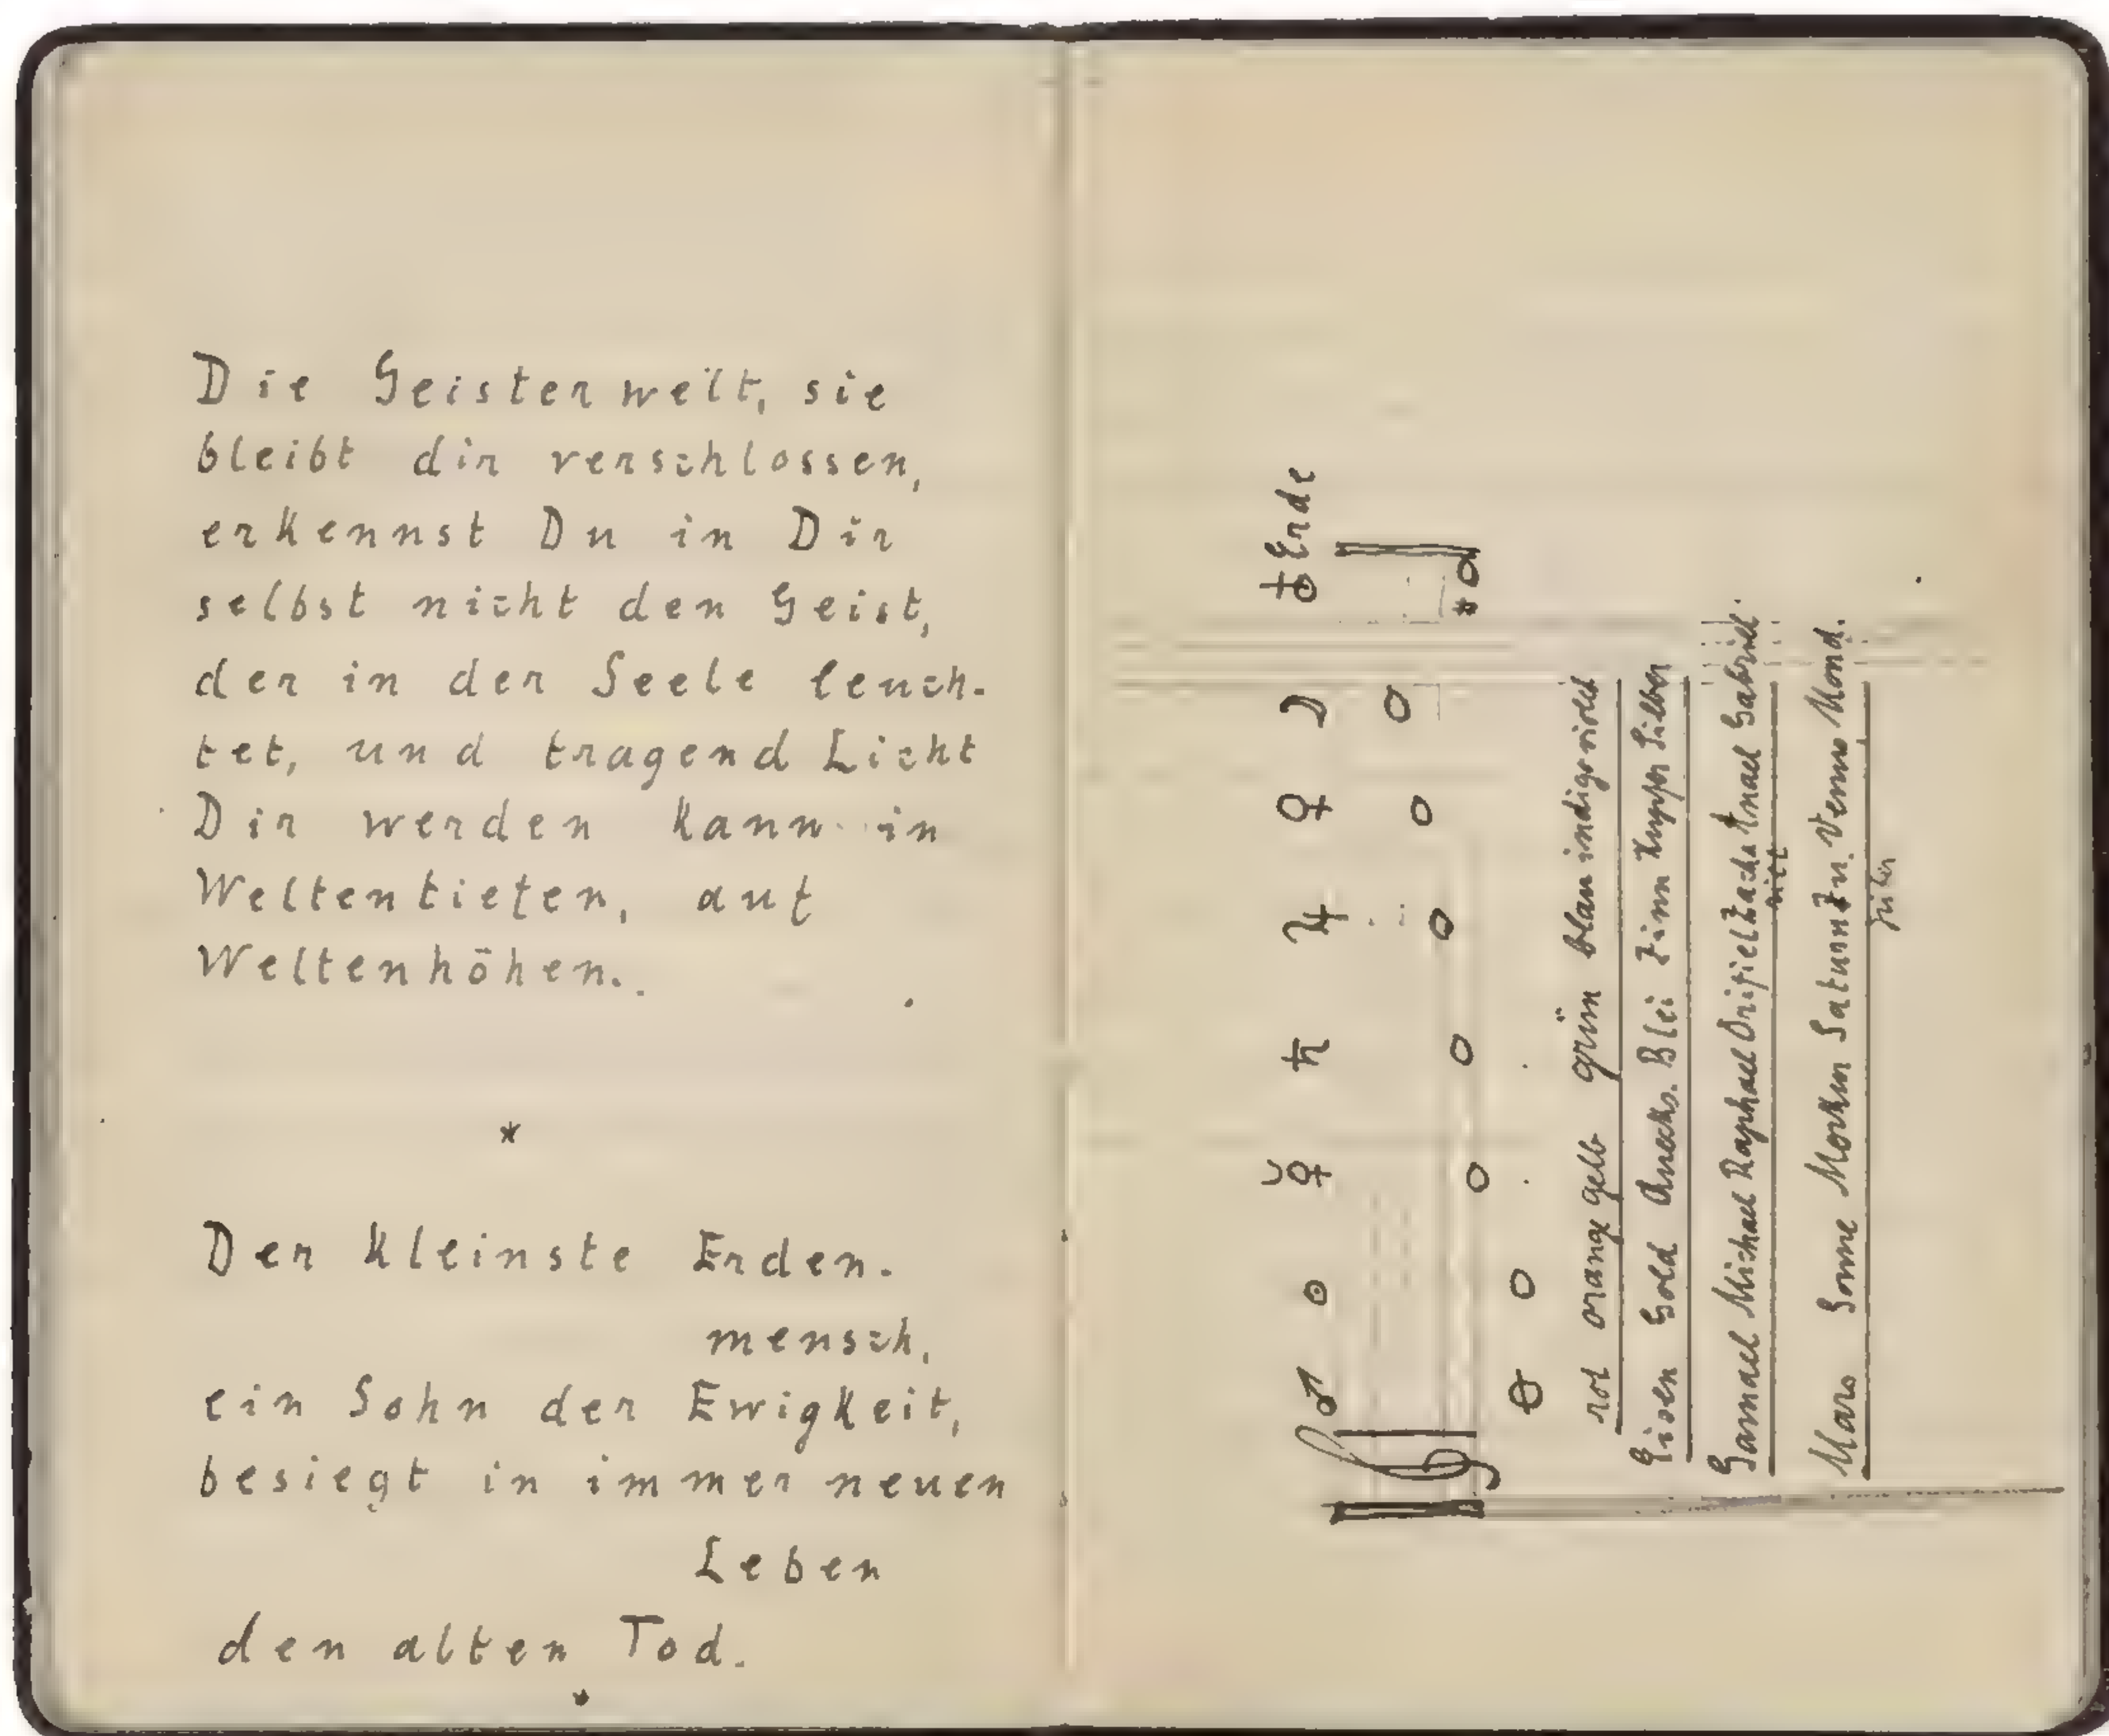 Die Geisterwelt, sie
bleibt dir verschlossen,
erkennst Du in Dir
selbst nicht den Geist,
der in der Seele leuch-
tet, und tragend Licht
Dir werden kann in
Weltentiefen, auf
Weltenhöhen.
*
Der Kleinste Erden-
mensch,
ein Sohn der Ewigkeit,
besiegt in immer neuen
Leben
den alten Tod.
*
♂ ☉ ☿ ♄ ♃ ♀ ☽ ♁ Erde
rot orange gelb grün blau indigo violett
Eisen Gold Quecks. Blei Zinn Kupfer Silber
Samael Michael Raphael Orifiel Zacha Anael Gabriel.
riel
Mars Sonne Merkur Saturn Ju Venus Mond.
piter